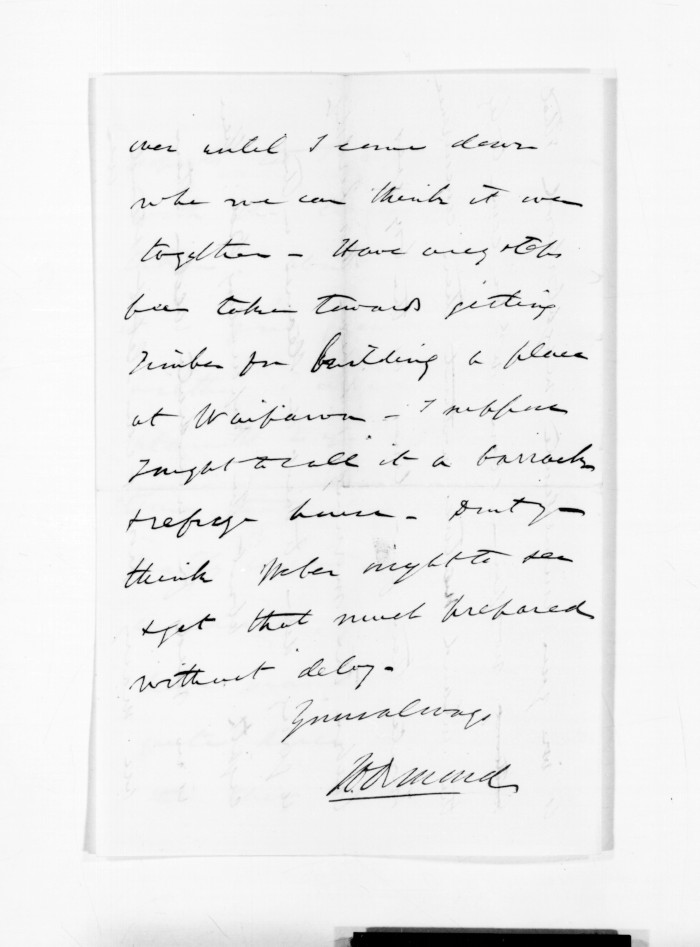 over until I come down
when we can think it over
together - Have any steps
been taken towards getting
Timber for building a place
at Waipawa - I suppose
I ought to call it a barracks
& refuge house - Don't you
think Weber ought to see
& get that much prepared
without delay -
Yours always
J D Ormond